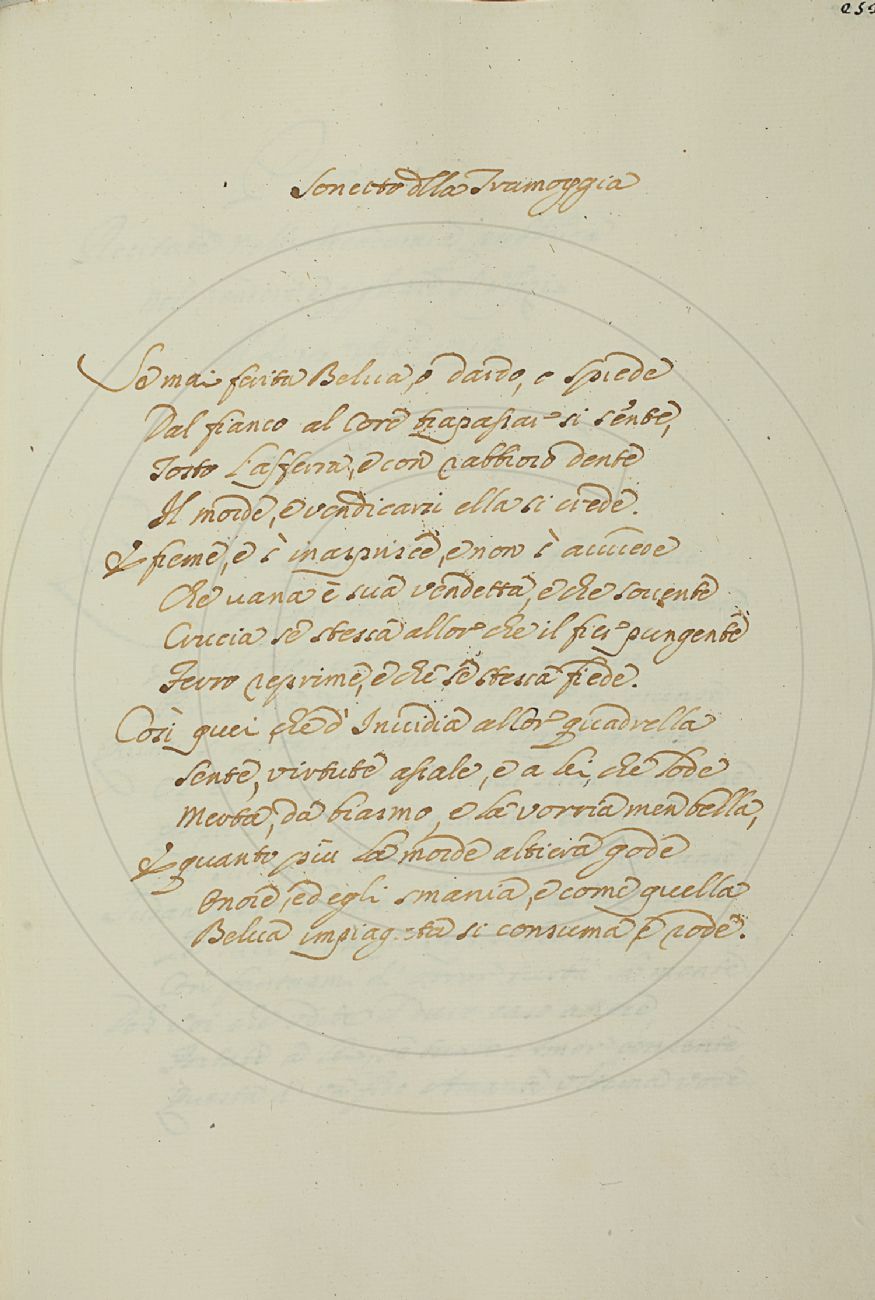 Sonetto della Tramoggia
Se mai ferita Belua, o dardo, o spiede
Dal fianco al core trapassar si sente,
Tosto l'afferra, e con rabbioso dente
Il morde, e vendicarsi ella si crede.
E freme, e s'inasprisce, e non s'avvede
Che vana è sua vendetta, e che sovente
Crucia se stessa allor che il fier pungente
Ferro reprime, e che se stessa fiede.
Così quei, che d'Invidia allor quadrella
Sente, virtute assale, e a lei, che lode
Merta, dà biasmo, e la vorria men bella,
E quanto più la morde altiera gode
Onore, ed egli smania, e come quella
Belua impiagata si consuma, e rode.